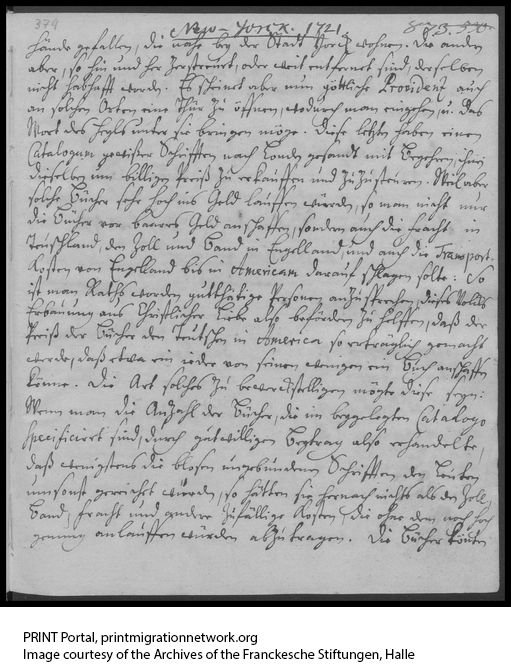 379
New-Yorck. 1721.
hände gefallen, die nahe bey der Stadt Yorck wohnen. Die andern
aber, so hin und her zerstreuet, oder weit entfernet sind, derselben
nicht habhafft werden. Es scheinet aber nun göttliche Providentz auch
an solchen Orten eine Thür zu öffnen, wodurch man eingehen, u. das
Wort des Heyls unter sie bringen möge. Diese letzten haben einen
Catalogum gewisser Schrifften nach Londen gesandt mit Begehren, ihnen
dieselben um billigen Preiß zu erkauffen und zuzusteuren. Weil aber
solche Bücher sehr hoch ins Geld lauffen werden, so man nicht nur
die Bücher vor baares Geld anschaffen, sondern auch die fracht in
Teuschland, den Zoll und Band in Engelland, und auch die Transport-
Kosten von Engelland bis in Americam darauf schlagen solte: So
ist man Raths worden gutthätige Personen anzusprechen, dieses Volks
Erbauung aus Christlicher Liebe also befördern zu helffen, daß der
Preiß der Bücher den Teutschen in America so erträglich gemacht
werde, daß etwa ein jeder von seinen wenigen ein Buch anschaffen
könne. Die Art solches zu bewerckstelligen mögte diese seyn:
Wenn man die Anzahl der Bücher, die im beygelegten Catalogo
specificiret sind, durch gutwilligen Beytrag also erhandelte,
daß wenigstens die blosen ungebundenen Schrifften den Leuten
umsonst gereicht würden, so hätten sie hernach nichts als den Zoll,
Band, fracht und andere zufällige Kosten, die ohne dem noch hoch
genung anlauffen würden abzutragen. Die Bücher könten
PRINT Portal, printmigrationnetwork.org
Image courtesy of the Archives of the Franckesche Stiftungen, Halle